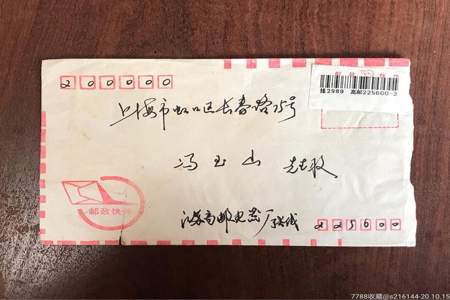 200000
挂2989 高邮225600-3
上海市虹口区长春路75号
冯玉山 先生收
邮政快件
江苏高邮
225600
7788收藏@s216144-20.10.15